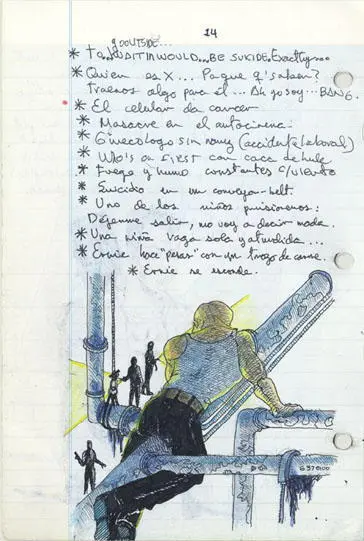 14
go OUTSIDE...
* To WAIT IN WOULD...BE SUICIDE. Exactly...
* Quien es X... Pa que q' salgan?
Traemos algo para él... Ah yo soy... BANG.
* El celular da cancer
* Masacre en el autocinema.
* Ginecologo sin nariz (accidente laboral)
* WHO'S on FIRST con caca de hule
* Fuego y humo constantes c/viento
* Suicidio en un conveyor-belt.
* Uno de los niños prisioneros:
Déjenme salir, no voy a decir nada.
* Una niña vaga sola y aturdida...
* Ernie hace "peras" con un trozo de carne.
* Ernie se esconde.